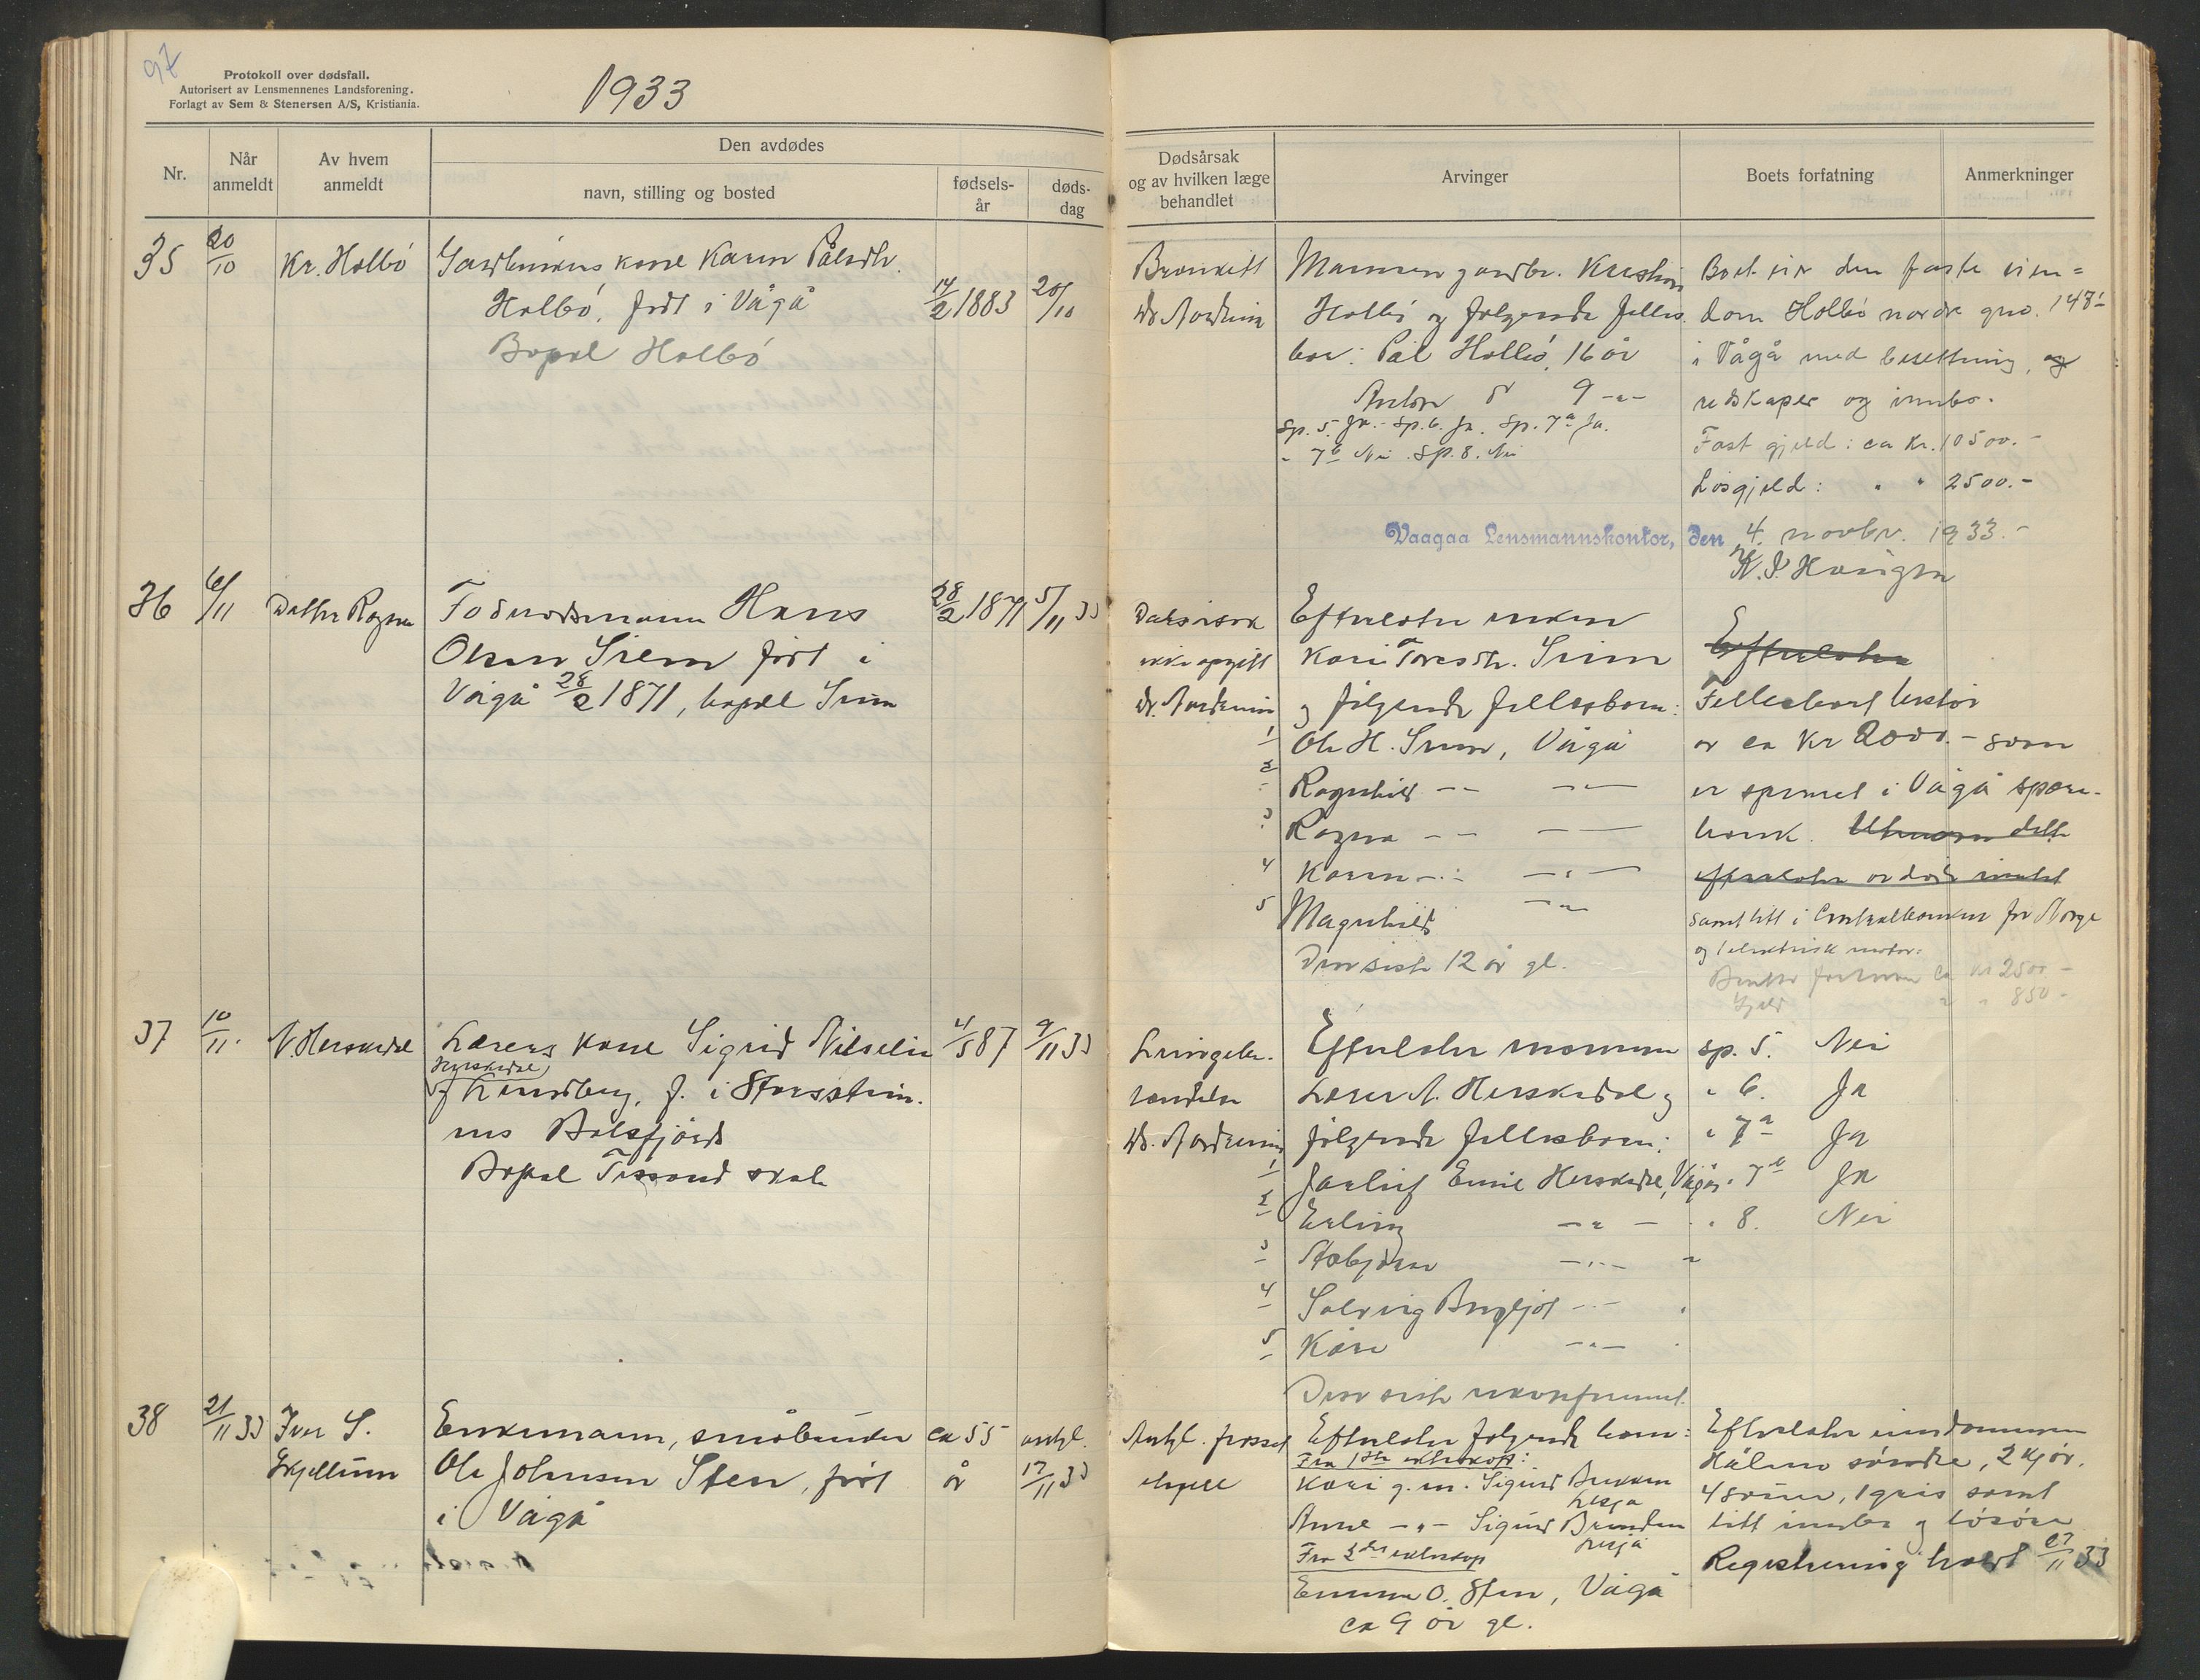 97
Protokoll over dødsfall.
Autorisert av Lensmennenes Landsforening.
Forlagt av Sem & Stenersen A/S, Kristiania.
1933
Nr.
Når anmeldt
Av hvem anmeldt
Den avdødes
navn, stilling og bosted
fødsels-år
døds-dag
Dødsårsak og av hvilken læge behandlet
Arvinger
Boets forfatning
Anmerkninger
35
20/10
Kr. Holbö
Gardbrukers kone Karen Pålsdtr.
Holbö, født i Vågå
Bopæl Holbö
14/2 1883
20/10
Bronkitt
Dr. Nordheim
Mannen gardbr. Kristian
Holbö og følgende felles
barn: Pål Holbö, 16 år
9 -"-
Sp. 5. Ja. - Sp. 6. Ja. Sp. 7a Ja.
" 7b Nei. Sp. 8. Nei
Boet eier den faste eien=
dom Holbö nordre gno. 147
i Vågå med besettning, og
redskaper og innbo.
Fast gjeld: ca Kr. 10500.-
Løsgjeld: " " 2500.-
Vaagaa Lensmannskontor, den 4. novbr. 1933.-
36
6/11
Datter Ragna
Føderådsmann Hans
Olsen Sreen født i
Vågå 28/2 1871, bopæl
28/2 1871
5/11 33
Dødsårsak
ikke opgitt
Efterlater enken
Kari Toresdtr.
og følgende fellesbarn:
1 Ole H. , Vågå
2 Ragnhild -- -"-
3 Ragna -- --
4 Karen -"- -"-
5 Magnhild -"-
Den siste 12 år gl.
Efterlater
Fellesboet består
av ca Kr 2000.- som
er innsatt i Vågå spare-
bank. Utenom dette
efterlater avdøde intet
samt litt i Centralbanken for Norge
og 1 elektrisk motor.
Brutto formue ca kr 2500.-
Gjeld " " 850.-
37
10/11.
N. Herskedal
Lærers kone Sigrid Nilseline
Herskedal
f. Lundberg, f. i Storsteinnes
Balsfjord
Bopæl Tessand skole
4/5 87
9/11 33
Lungebe-
tendelse
Efterlater mannen
Lærer N. Herskedal og
følgende fellesbarn:
1 Jarleif Emil Herskedal, Vågå
2 Erling -"- -
3
4 Solveig Bergljot -"-
5 Kåre -"-
Den siste ukonfirmert.
sp. 5. Nei
" 6. Ja
" 7a Ja
" 7b Ja
" 8. Nei
38
21/11 33
Iver S.
Skjellum
Enkemann, småbruker
Ole Johnsen Steen, født
i Vågå
ca 55
år
antgl.
17/11 33
Antgl. frosset
ihjel
Efterlater følgende barn:
Fra 1ste ekteskap:
Kari g.m. Sigurd Brekken
Lesja
Anne -"- Sigurd Brenden
Lesja
Fra 2det ekteskap
Emma O. Sten, Vågå
ca 9 år gl.
Efterlater eiendommen
søndre, 2 kjør,
4 sauer, 1 gris samt
litt innbo og løsøre
Registrering holdt 27/11 33